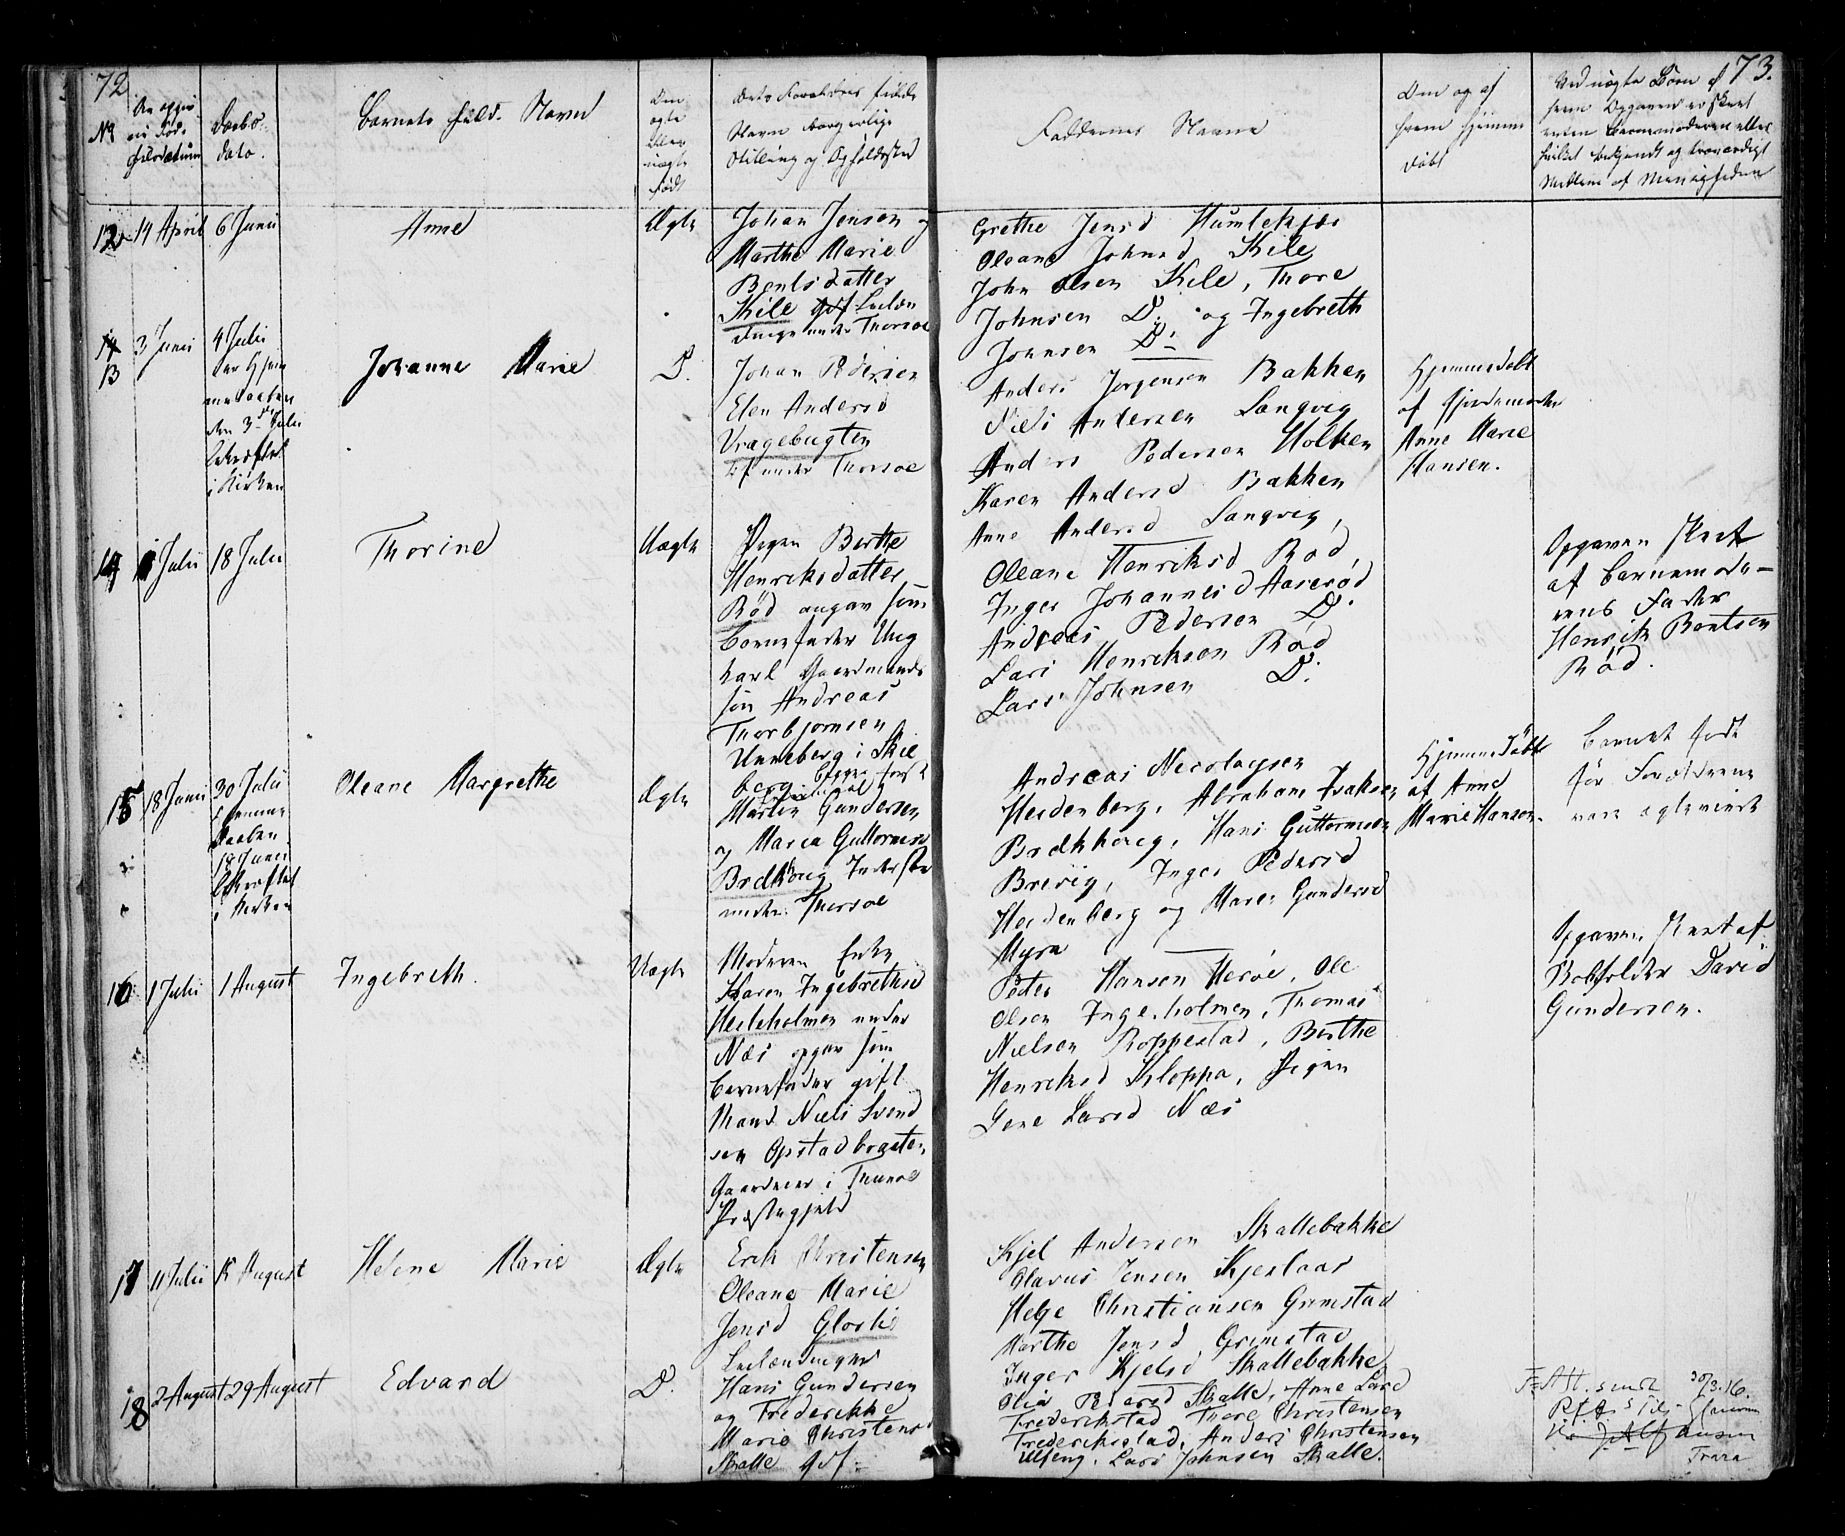 72
73.
Nº
Daabs-
dato.
Barnets fulde Navn
Om
ægte
eller
uægte
født
Forældres fulde
Navn borgerlige
Stilling og Opholdssted
Faddernes Navne
Om og af
hvem hjemme
døbt
Ved uægte Børn af
hvem Opgaven er skeet
enten Barnemoderen eller
andet bekjendt og troværdigt
Medlem af Menigheden
14 April
6 Junii
Anne
Ægte
Johan Jensen og
Marthe Marie
Bentsdatter
Kile
under Thorsøe
Grethe Jensd Humlekjær
Oleane Johnsd Kile
John Olsen Kile, Thore
Johnsen D. og Ingebreth
Johnsen D.
13
3 Junii
4 Julii
den 3die Julii
i Kirken
Johanne Marie
D.
Johan Pedersen
Elen Andersd
Vragebugten
under Thorsøe
Anders Jørgensen Bakken
Niels Andersen Langvig
Anders Pedersen Holken
Karen Andersd Bakken
Anne Andersd Langvig,
Hjemmedøbt
af Gjordemoder
Anne Marie
Hansen.
14
1 Julii
18 Julii
Thorine
Uægte
Pigen Berthe
Henriksdatter
Rød angav som
Barnefader Ung
karl Gaardmands
søn Andreas
Thorbjørnsen
Unneberg i Skie
berg
Oleane Henriksd Rød
Inger Johannesd Aaserød
Andreas Pedersen D.
Lars Henriksen Rød
Lars Johnsen D.
Opgaven skeet
af Barnemode-
rens Fader
Henrik Bentsen
Rød.
15
18 Junii
30 Julii
hjemme
daaben
18 Junii
bekræftet
i Kirken
Oleane Margrethe
Ægte
Martin Gundersen
og Maren Guttormsd
Brækkerig Inderste
under Thorsøe
Andreas Nicolaysen
Heidenberg, Abraham Isaksen
Brækkerig, Hans Guttormsen
Brevig, Inger Pedersd
Heidenberg og Maren Gundersd
Myra
Hjemmedøbt
af Anne
Marie Hansen.
Barnet født
før Forældrene
vare ægteviede
16
1 Julii
1 August
Ingebreth.
Uægte
Moderen Enke
Karen Ingebrethsd
Heileholmen under
Næs opgav som
Barnefader gift
Mand Niels Svend
sen Opstadbraaten
Gaardmand i Thunøe
Præstegjeld
Peter Hansen Herøe, Ole
Olsen Ingerholmen, Thomas
Nielsen Roppestad, Berthe
Henriksd Kloppa, Pigen
Gene Larsd Næs
Opgaven skeet af
David
Gundersen.
17
11 Julii
15 August
Helene Marie
Ægte
Erik Christensen
Oleane Marie
Jensd Glorlie
Leilændinger
Kjel Andersen Skallebakke
Olavus Jensen Kjerlaas
Helge Christiansen Grimstad
Marthe Jensd Grimstad
Inger Kjelsd Skallebakke
18
2 August
29 August
Edvard
D.
Hans Gundersen
og Frederikke
Marie Christensd
Skalle
Olia Pedersd Skalle, Anne Larsd
Frederikstad Thore Christensen
Frederikstad, Anders Christensen
Ulfeng. Lars Johnsen Skalle.
F. Att. sendt 30/3.16.